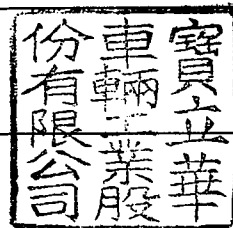 寶立華
車輛工業股
份有限公司